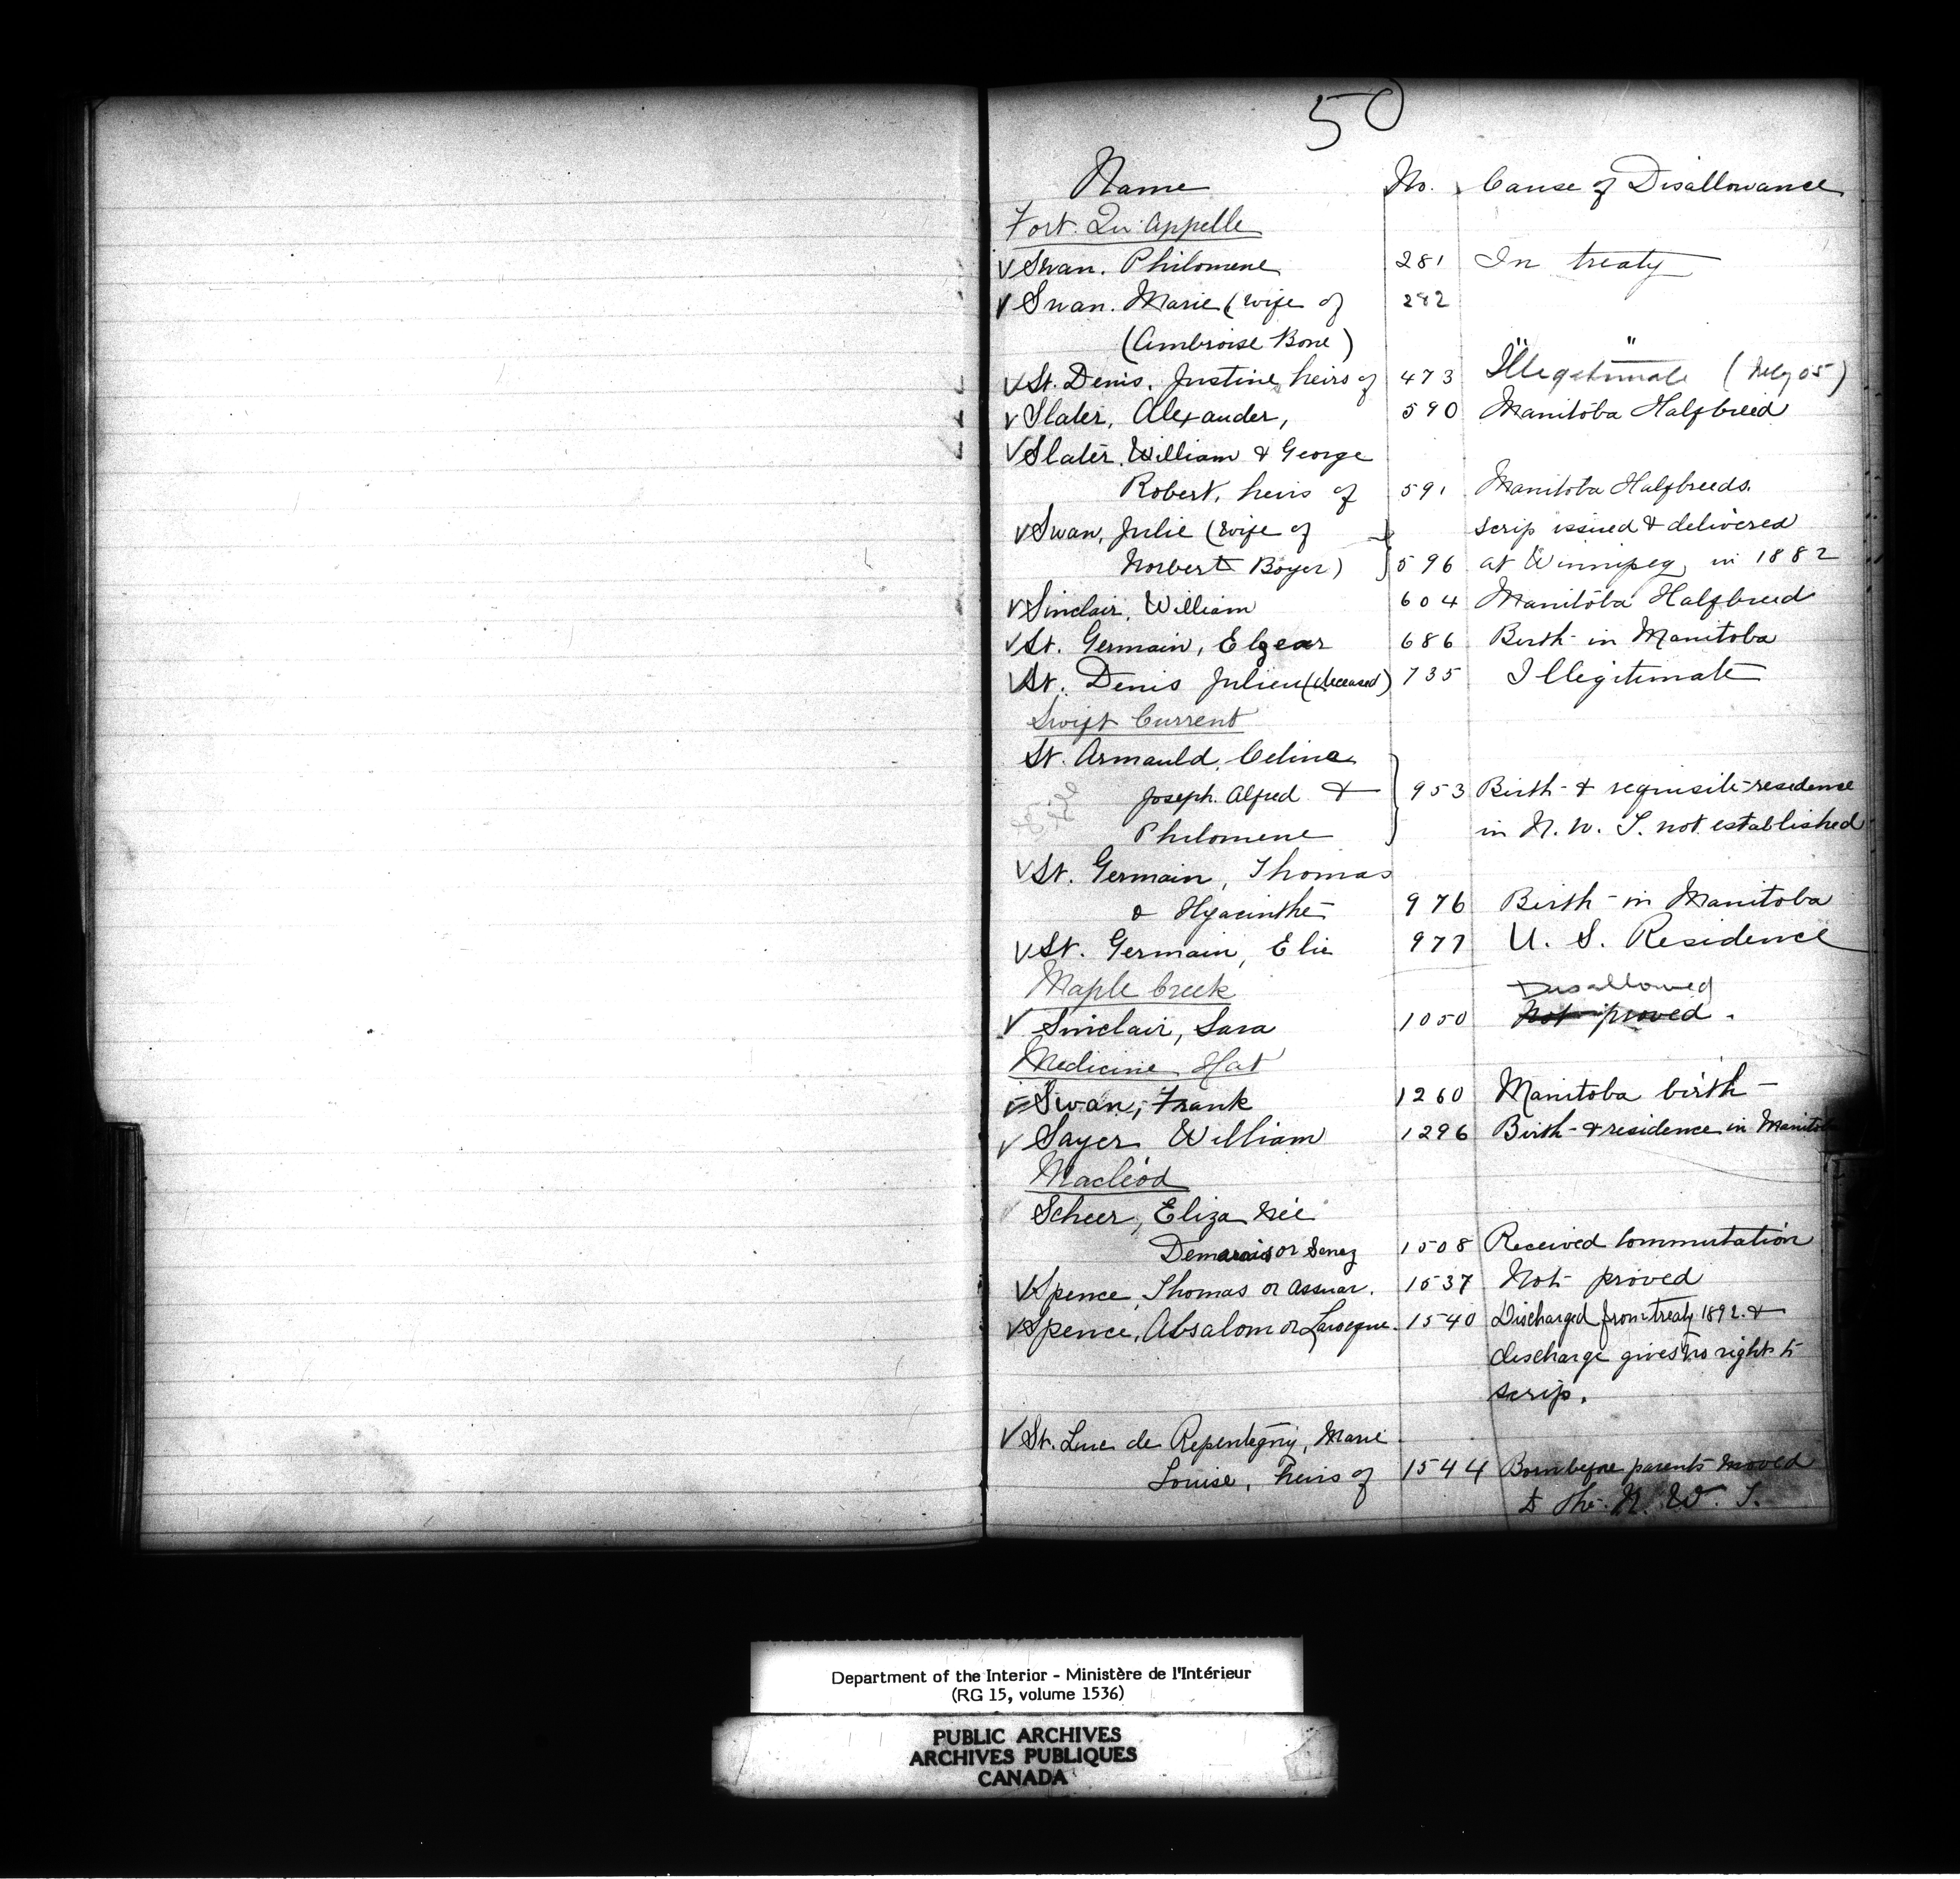 50
Name No. Cause of Disallowance
Fort Qu'Appelle
✓ Swan. Philomene 281 In treaty
✓ Swan. Marie (wife of 282
(Ambroise Bone) " "
✓ St. Denis, Justine, heirs of 473 Illegitimate ( 05)
✓ Slater, Alexander, 590 Manitoba Halfbreed
✓ Slater, William & George
Robert, heirs of 591 Manitoba Halfbreeds.
✓ Swan, Julie (wife of scrip issued & delivered
Norbert Boyer) } 596 at Winnipeg in 1882
✓ Sinclair, William 604 Manitoba Halfbreed
✓ St. Germain, Elzear 686 Birth in Manitoba
✓ St. Denis Julien (deceased) 735 Illegitimate
Swift Current
St. Armauld, Celina
Joseph. Alfred & } 953 Birth & requisite residence
Philomene in N. W. T. not established
✓ St. Germain, Thomas
& Hyacinthe 976 Birth in Manitoba
✓ St. Germain, Elie 977 U. S. Residence
Maple Creek Disallowed
✓ Sinclair, Sara 1050 Not proved.
Medicine Hat
✓ Swan, Frank 1260 Manitoba birth
✓ Sayer William 1296 Birth & residence in Manitoba
Macleod
Scheer, Eliza née
Demarais or Senez 1508 Received Commutation
✓ Spence, Thomas or Assuar. 1537 Not proved
✓ Spence, Absalom or Larocque. 1540 Discharged from treaty 1892. &
discharge gives no right to
scrip.
✓ St. Luc de Repentegny, Marie
Louise, heirs of 1544 Born before parents moved
to the N. W. T.
Department of the Interior - Ministère de l'Intérieur
(RG 15, volume 1536)
PUBLIC ARCHIVES
ARCHIVES PUBLIQUES
CANADA